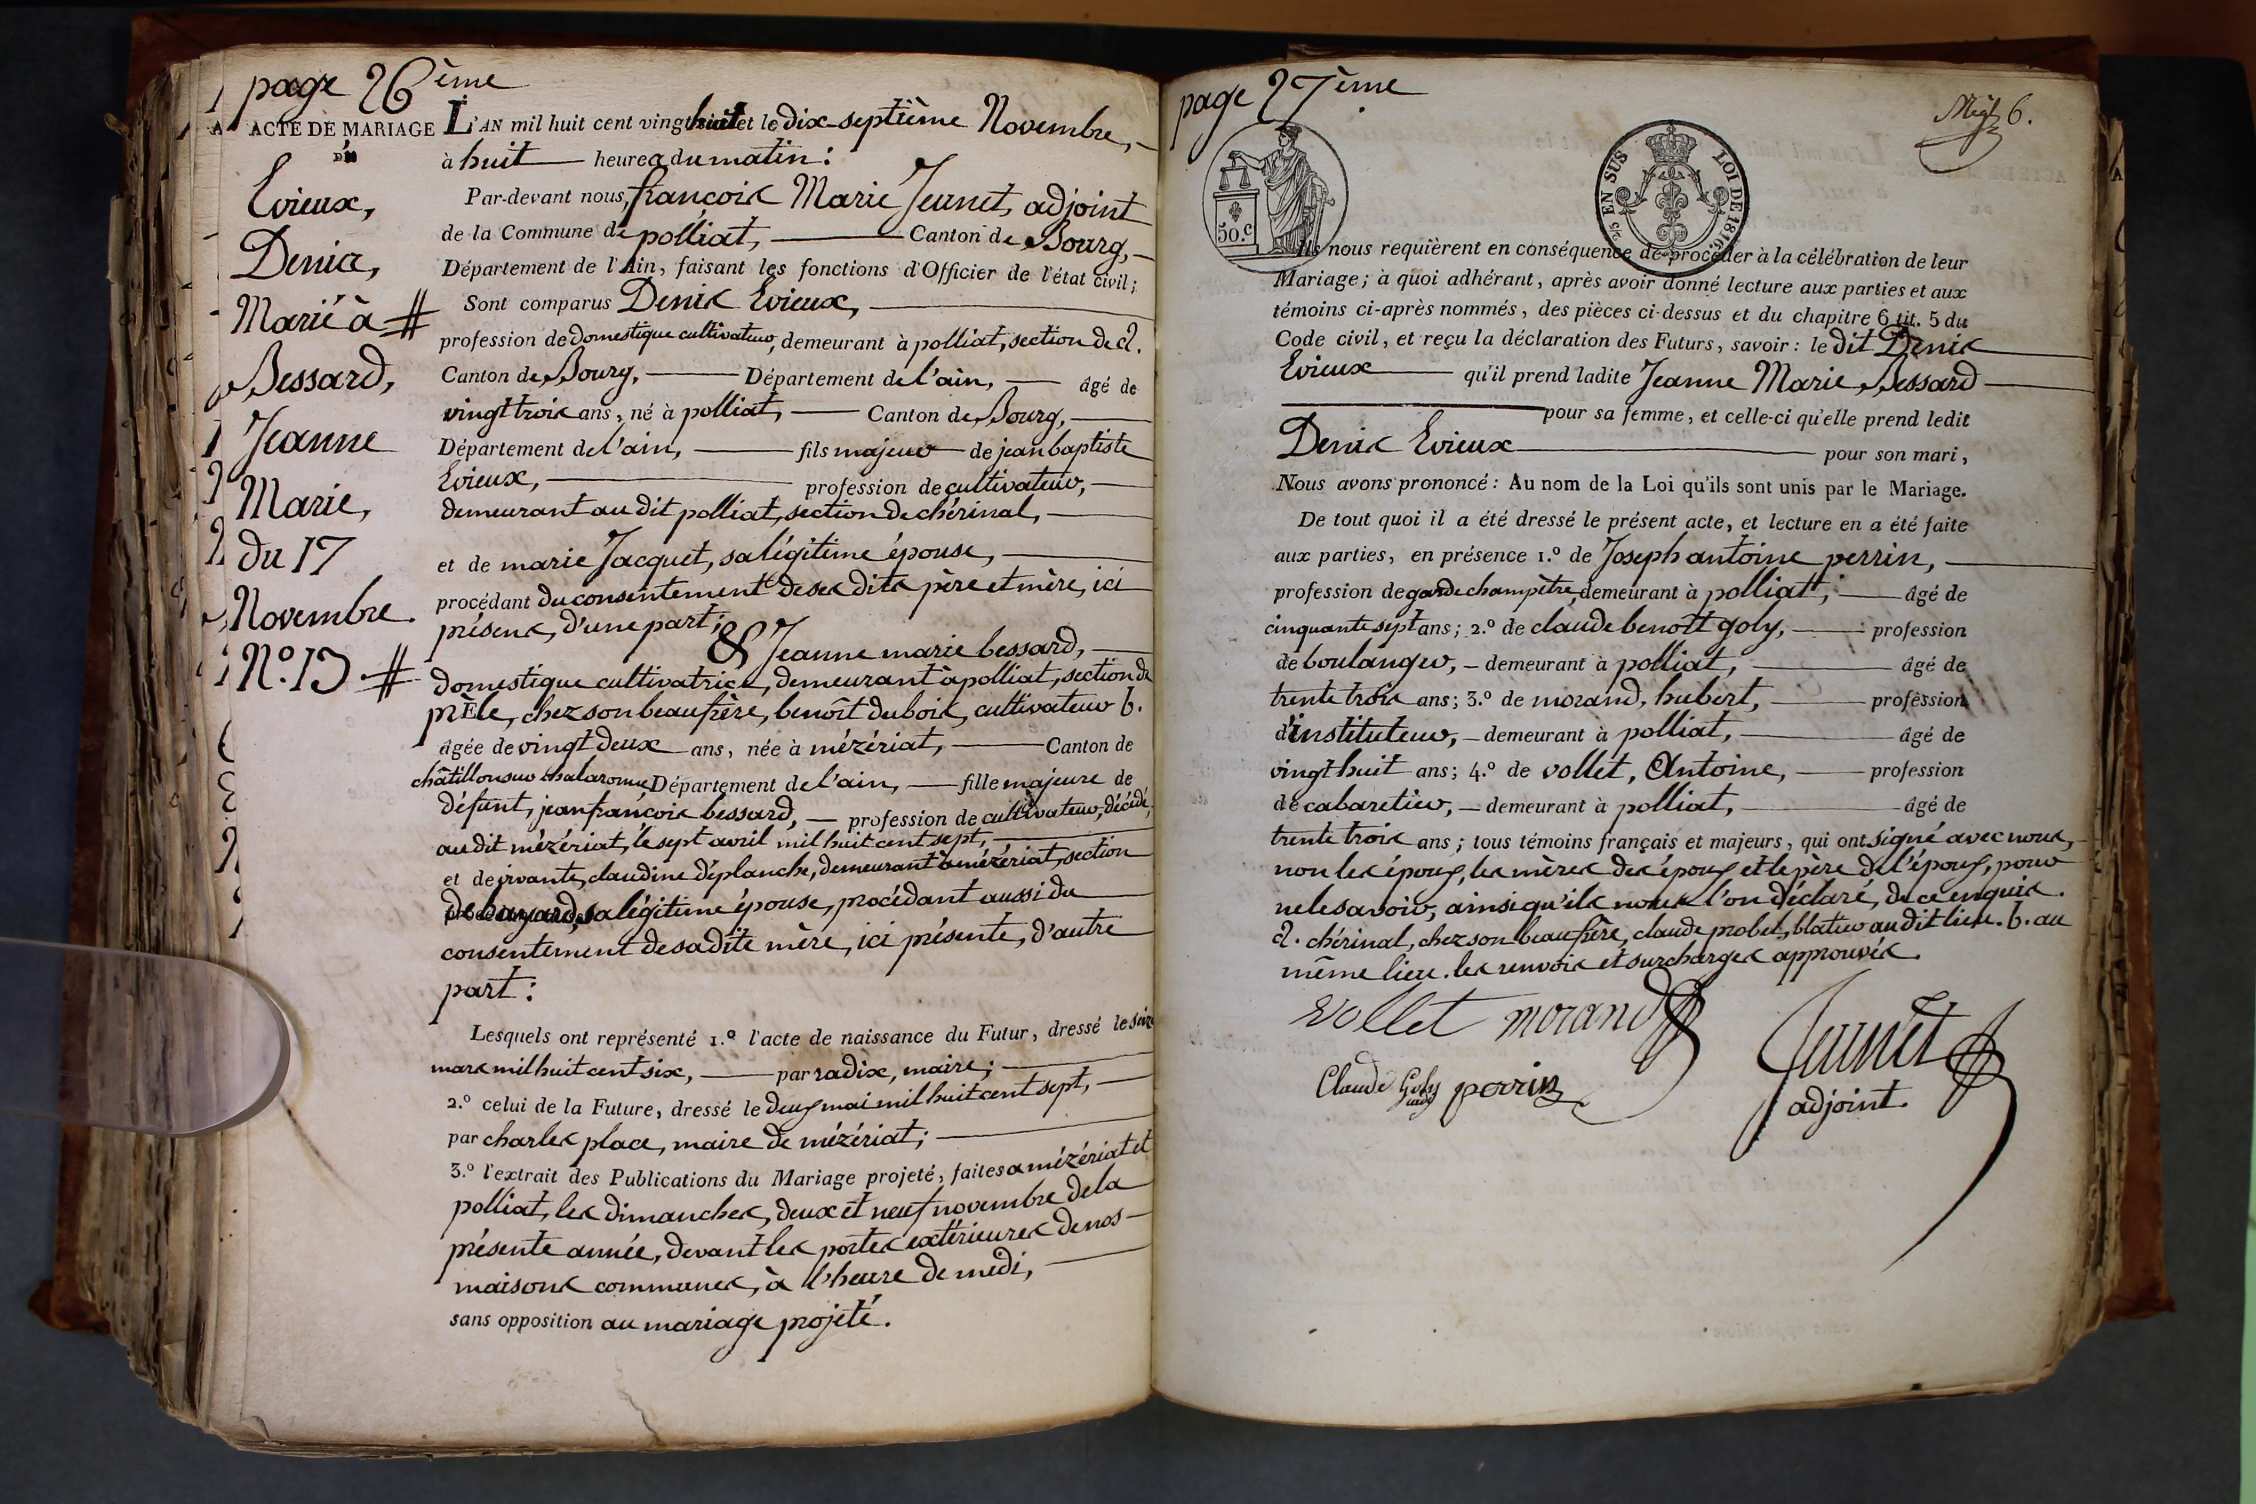 page 26ème
ACTE DE MARIAGE
DE
Evieux,
Denis,
Marié à #
Bessard,
Jeanne
Marie,
du 17
Novembre.
N.º 13 #
L'AN mil huit cent vingt huit et le dix-septième Novembre,
à huit heures du matin:
Par-devant nous, françois Marie Jeunet, adjoint
de la Commune de polliat, Canton de Bourg,
Département de l'Ain, faisant les fonctions d'Officier de l'état civil;
Sont comparus Denis Evieux,
profession de domestique cultivateur, demeurant à polliat, section de a.
Canton de Bourg, Département de l'ain, âgé de
vingt trois ans, né à polliat, Canton de Bourg,
Département de l'ain, fils majeur de jean baptiste
Evieux, profession de cultivateur,
demeurant au dit polliat, section de chérinal,
et de marie Jacquet, sa légitime épouse,
procédant du consentement de ses dits père et mère, ici
présens, d'une part;
& Jeanne marie bessard,
domestique cultivatrice, demeurant à polliat, section de
prÈle, chez son beaufrère, benoît dubois, cultivateur b.
âgée de vingt deux ans, née à mézériat, Canton de
châtillon sur chalaronne Département de l'ain, fille majeure de
défunt, jean françois bessard, profession de cultivateur, décédé,
au dit mézériat, le sept avril mil huit cent sept,
et de vivante, claudine déplanche, demeurant à mézériat, section
de bayard, sa légitime épouse, procédant aussi du
consentement de sa dite mère, ici présente, d'autre
part:
Lesquels ont représenté 1.º l'acte de naissance du Futur, dressé le seize
mars mil huit cent six, par radix, maire;
2.º celui de la Future, dressé le deux mai mil huit cent sept,
par charles place, maire de mézériat;
3.º l'extrait des Publications du Mariage projeté, faites a mézériat et
polliat, les dimanches, deux et neuf novembre de la
présente année, devant les portes extérieures de nos
maisons communes, à l'heure de midi,
sans opposition au mariage projeté.
page 27ème
6.
50.C
EN SUS
LOI DE 1816.
Ils nous requièrent en conséquence de procéder à la célébration de leur
Mariage; à quoi adhérant, après avoir donné lecture aux parties et aux
témoins ci-après nommés, des pièces ci-dessus et du chapitre 6 tit. 5 du
Code civil, et reçu la déclaration des Futurs, savoir: le dit Denis
Evieux qu'il prend ladite Jeanne Marie Bessard
pour sa femme, et celle-ci qu'elle prend ledit
Denis Evieux pour son mari,
Nous avons prononcé: Au nom de la Loi qu'ils sont unis par le Mariage.
De tout quoi il a été dressé le présent acte, et lecture en a été faite
aux parties, en présence 1.º de Joseph antoine perrin,
profession de garde champêtre, demeurant à polliat; âgé de
cinquante sept ans; 2.º de claude benoît goly, profession
de boulanger, demeurant à polliat, âgé de
trente trois ans; 3.º de morand, hubert, profession
d'instituteur, demeurant à polliat, âgé de
vingt huit ans; 4.º de vollet, Antoine, profession
de cabaretier, demeurant à polliat, âgé de
trente trois ans; tous témoins français et majeurs, qui ont signé avec nous,
non les époux, les mères des époux et le père de l'époux, pour
ne le savoir, ainsi qu'ils nous l'on déclaré, de ce enquis.
a. chérinal, chez son beaufrère, claude probet, blatier au dit lieu. b. au
même lieu. les renvois et surcharges approuvés.
vollet morand
Jeunet
Claude Goly perrin
adjoint.